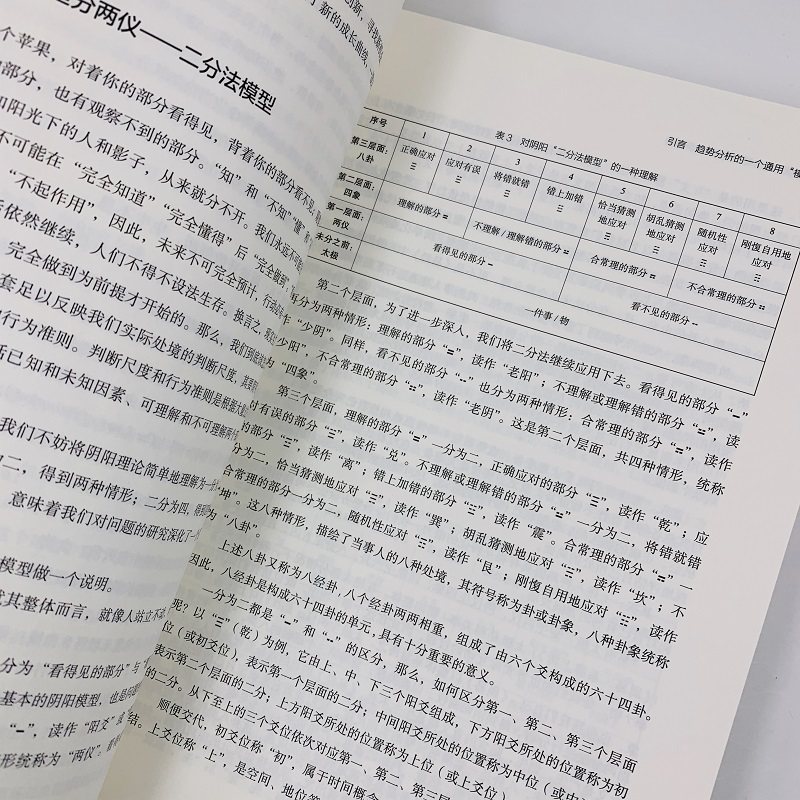 分两仪——二分法模型
新，寻找新的
了新的成长曲线，
个苹果，对着你的部分看得见，背着你的部分看不见
部分，也有观察不到的部分。“知”和“不知”“懂”
和阳光下的人和影子，从来就分不开。我们永远不可能
不可能在“完全知道”“完全懂得”后“完全做到”
“不起作用”，因此，未来不可完全预计，行动
依然继续，人们不得不设法生存。换言之，
完全做到为前提才开始的。那么，我们到底
套足以反映我们实际处境的判断尺度，其
行为准则。判断尺度和行为准则是根据大
括已知和未知因素、可理解和不可理解两
我们不妨将阴阳理论简单地理解为一
二，得到两种情形；二分为四，得到
意味着我们对问题的研究深化了一
模型做一个说明。
就其整体而言，就像人站立不动，
分为“看得见的部分”与“
基本的阴阳模型，也是问题
“⚊”，读作“阳爻”或
形统称为“两仪”。看
引言 趋势分析的一个通用“模
表3 对阴阳“二分法模型”的一种理解
序号 1 2 3 4 5 6 7 8
第三层面：八卦 正确应对☰ 应对有误☱ 将错就错☲ 错上加错☳ 恰当猜测地应对☴ 胡乱猜测地应对☵ 随机性应对☶ 刚愎自用地应对☷
第二层面：四象 理解的部分⚌ 不理解/理解错的部分⚍ 合常理的部分⚎ 不合常理的部分⚏
第一层面：两仪 看得见的部分⚊ 看不见的部分⚋
未分之前：太极 一件事/物
第二个层面，为了进一步深入，我们将二分法继续应用下去。看得见的部分“⚊”
再分为两种情形：理解的部分“⚌”，读作“老阳”；不理解或理解错的部分“⚍”，读
作“少阴”。同样，看不见的部分“⚋”也分为两种情形：合常理的部分“⚎”，读作
“少阳”，不合常理的部分“⚏”，读作“老阴”。这是第二个层面，共四种情形，统称
为“四象”。
第三个层面，理解的部分“⚌”一分为二，正确应对的部分“☰”，读作“乾”；应
对有误的部分“☱”，读作“兑”。不理解或理解错的部分“⚍”一分为二，将错就错
的部分“☲”，读作“离”；错上加错的部分“☳”，读作“震”。合常理的部分“⚎”一
分为二，恰当猜测地应对“☴”，读作“巽”；胡乱猜测地应对“☵”，读作“坎”；不
合常理的部分一分为二，随机性应对“☶”，读作“艮”；刚愎自用地应对“☷”，读作
“坤”。这八种情形，描绘了当事人的八种处境，其符号称为卦或卦象，八种卦象统称
为“八卦”。
上述八卦又称为八经卦，八个经卦两两相重，组成了由六个爻构成的六十四卦。
因此，八经卦是构成六十四卦的单元，具有十分重要的意义。
一分为二都是“⚊”和“⚋”的区分，那么，如何区分第一、第二、第三个层面
呢？以“☰”（乾）为例，它由上、中、下三个阳爻组成，下方阳爻所处的位置称为初
位（或初爻位），表示第一个层面的二分；中间阳爻所处的位置称为中位（或中
表示第二个层面的二分；上方阳爻所处的位置称为上位（或上爻位），
的二分。从下至上的三个爻位依次对应第一、第二、第三
顺便交代，初爻位称“初”，属于时间概念
上爻位称“上”，是空间、地位